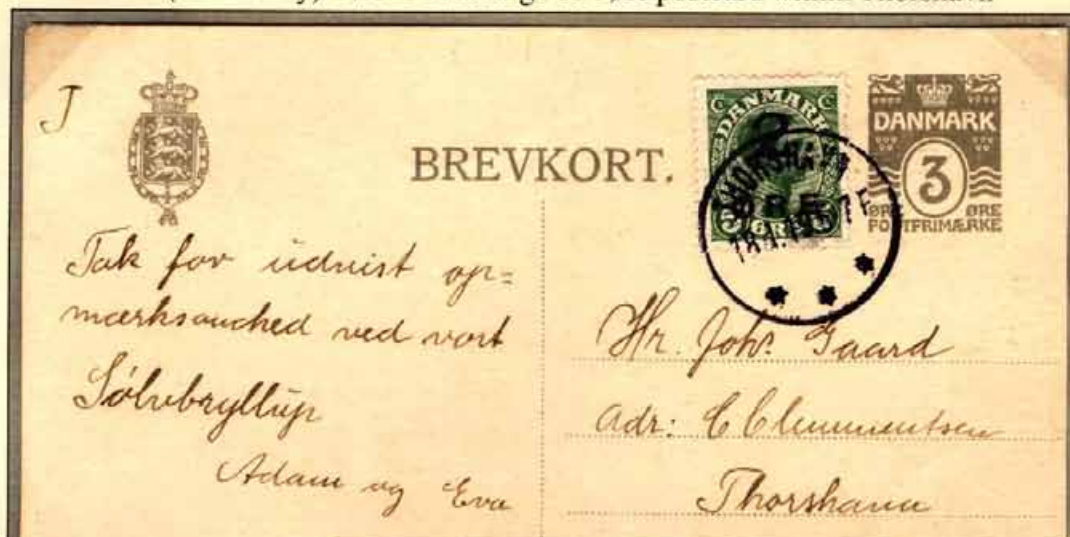 J
BREVKORT.
DANMARK
2
ØRE
THORSHAVN
DANMARK
3
ØRE ØRE
POSTFRIMÆRKE
Tak for udvist op=
mærksomhed ved vort
Sølvbryllup
Adam og Eva
Hr. Johs Gaard
Adr: C Clemmentsen
Thorshavn